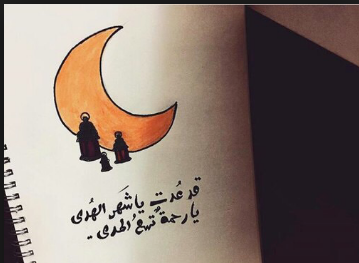 قد عُدتَ يا شَهر الهُدى
يا رحمةً تسعُ المدى .